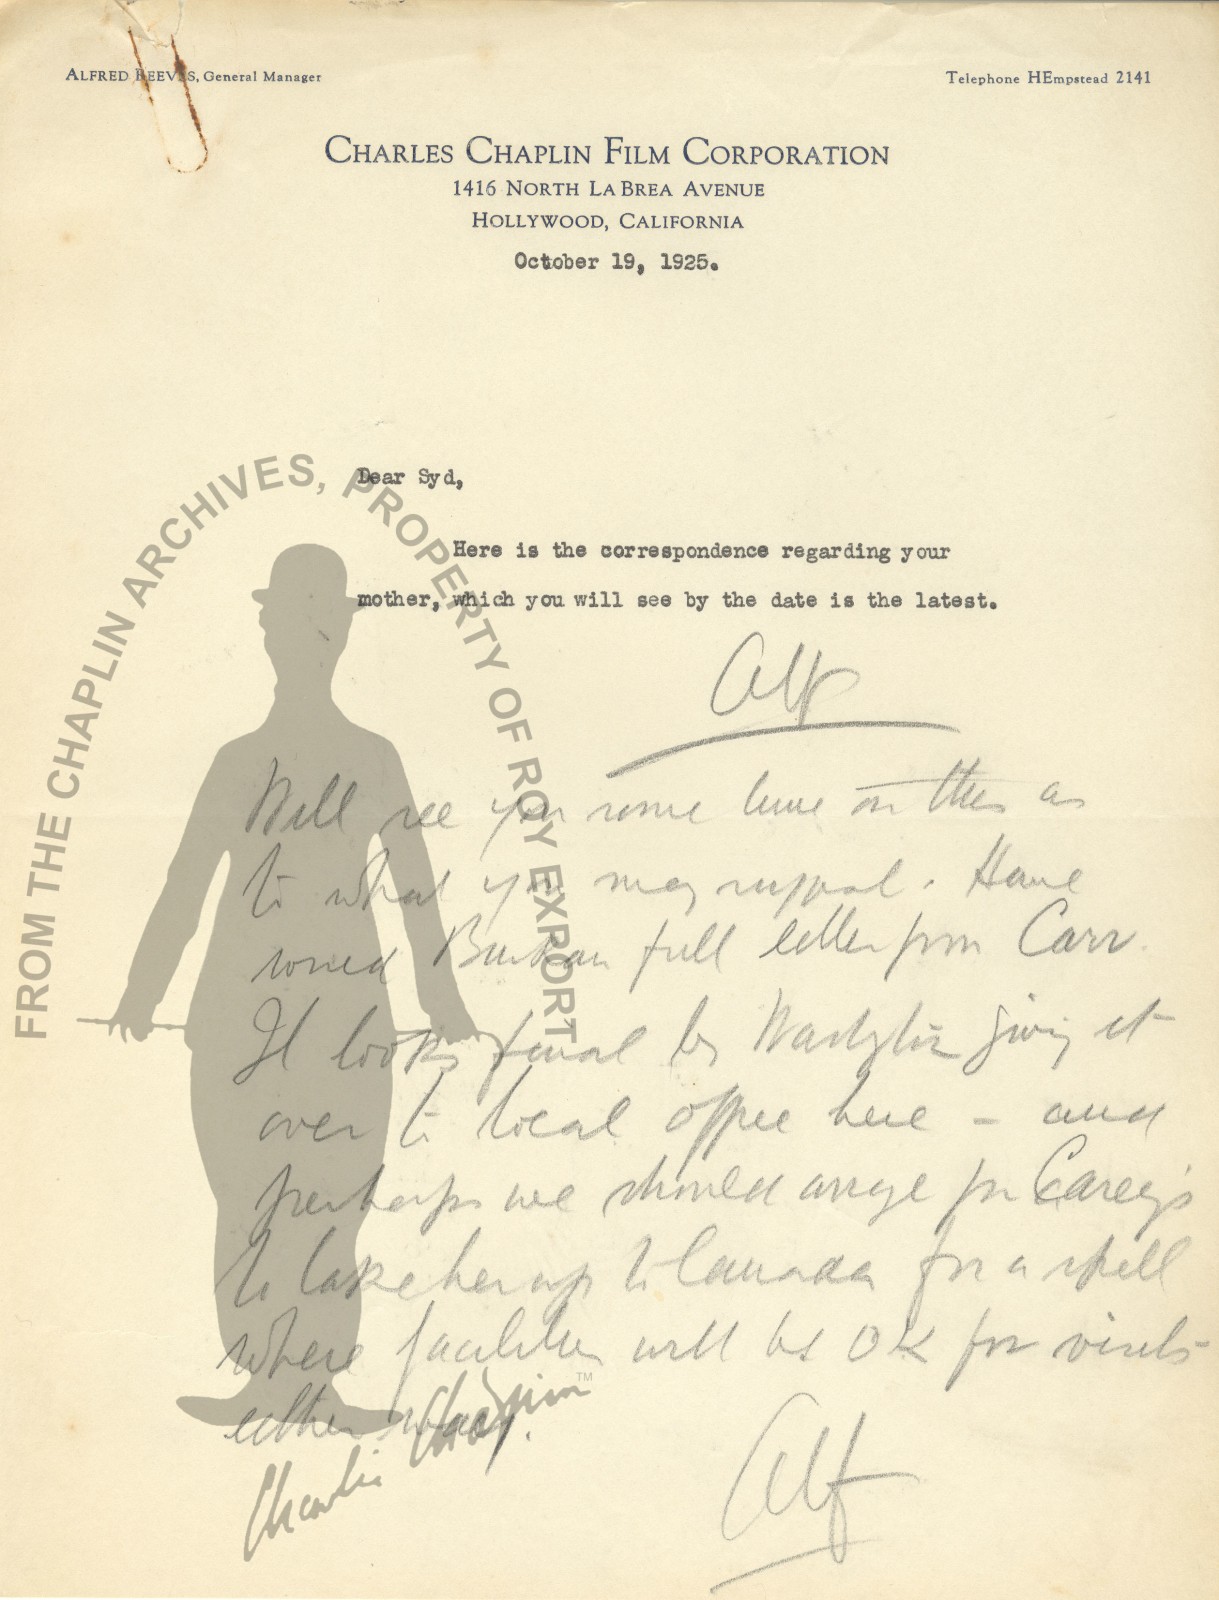 ALFRED REEVES, General Manager
Telephone HEmpstead 2141
CHARLES CHAPLIN FILM CORPORATION
1416 NORTH LA BREA AVENUE
HOLLYWOOD, CALIFORNIA
October 19, 1925.
Dear Syd,
Here is the correspondence regarding your
mother, which you will see by the date is the latest.
Alf
Will see you some time on this as
to what you may suggest. Have
wired Burkan full letter from Carr.
It looks final by Washgton giving it
over to local office here - and
perhaps we should arrange for Carey's
to take her up to Canada for a spell
where facilities will be OK for visits
either way.
Alf
FROM THE CHAPLIN ARCHIVES, PROPERTY OF ROY EXPORT
Charlie Chaplin™